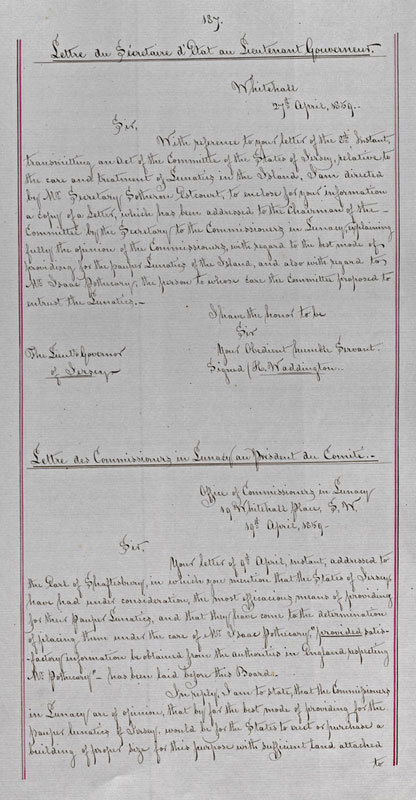 187.
Lettre du Sécretaire d'Etat au Lieutenant Gouverneur.
Whitehall
27th April, 1859.
Sir,
With reference to your letter of the 2d Instant,
transmitting an Act of the Committee of the States of Jersey, relative to
the care and treatment of Lunatics in the Island, I am directed
by Mr. Secretary Sotheron Estcourt, to enclose for your information
a copy of a Letter, which has been addressed to the Chairman of the
Committee by the Secretary to the Commissioners in Lunacy, explaining
fully the opinion of the Commissioners, with regard to the best mode of
providing for the pauper Lunatics of the Island, and also with regard to
Mr. Isaac Pothecary, the person to whose care the Committee proposed to
entrust the Lunatics.—
I have the honor to be
Sir
Your Obedient humble Servant.
The Lieut. Governor
of Jersey
Signed / H. Waddington.
Lettre des Commissioners in Lunacy au Président du Comité.—
Office of Commissioners in Lunacy
19 Whitehall Place, S. W.
19th April, 1859—
Sir,
Your letter of 9th April, instant, addressed to
the Earl of Shaftesbury, in which you mention that the States of Jersey,
have had under consideration, the most efficacious means of providing
for their Pauper Lunatics, and that they have come to the determination
of placing them under the care of Mr. Isaac Pothecary, "provided satis-
factory information be obtained from the authorities in England respecting
Mr. Pothecary"— has been laid before this Board.
In reply, I am to state, that the Commissioners
in Lunacy are of opinion, that by far the best mode of providing for the
pauper lunatics of Jersey, would be for the States to erect or purchase a
building of proper size for this purpose with sufficient land attached
to